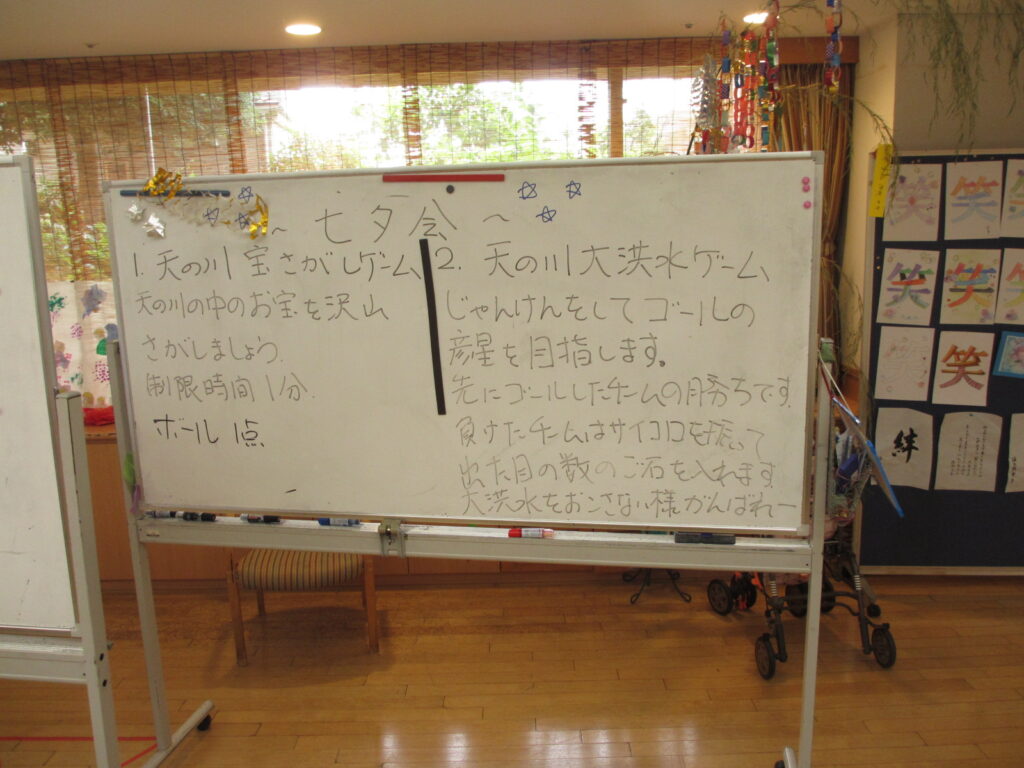 ～七夕会～
1. 天の川宝さがしゲーム
天の川の中のお宝を沢山
さがしましょう。
制限時間1分.
ボール1点
2. 天の川大洪水ゲーム
じゃんけんをしてゴールの
彦星を目指します。
先にゴールしたチームの勝ちです.
負けたチームはサイコロを振って
出た目の数のご石を入れます.
大洪水をおこさない様がんばれー
笑
笑
笑
笑
笑
笑
絆